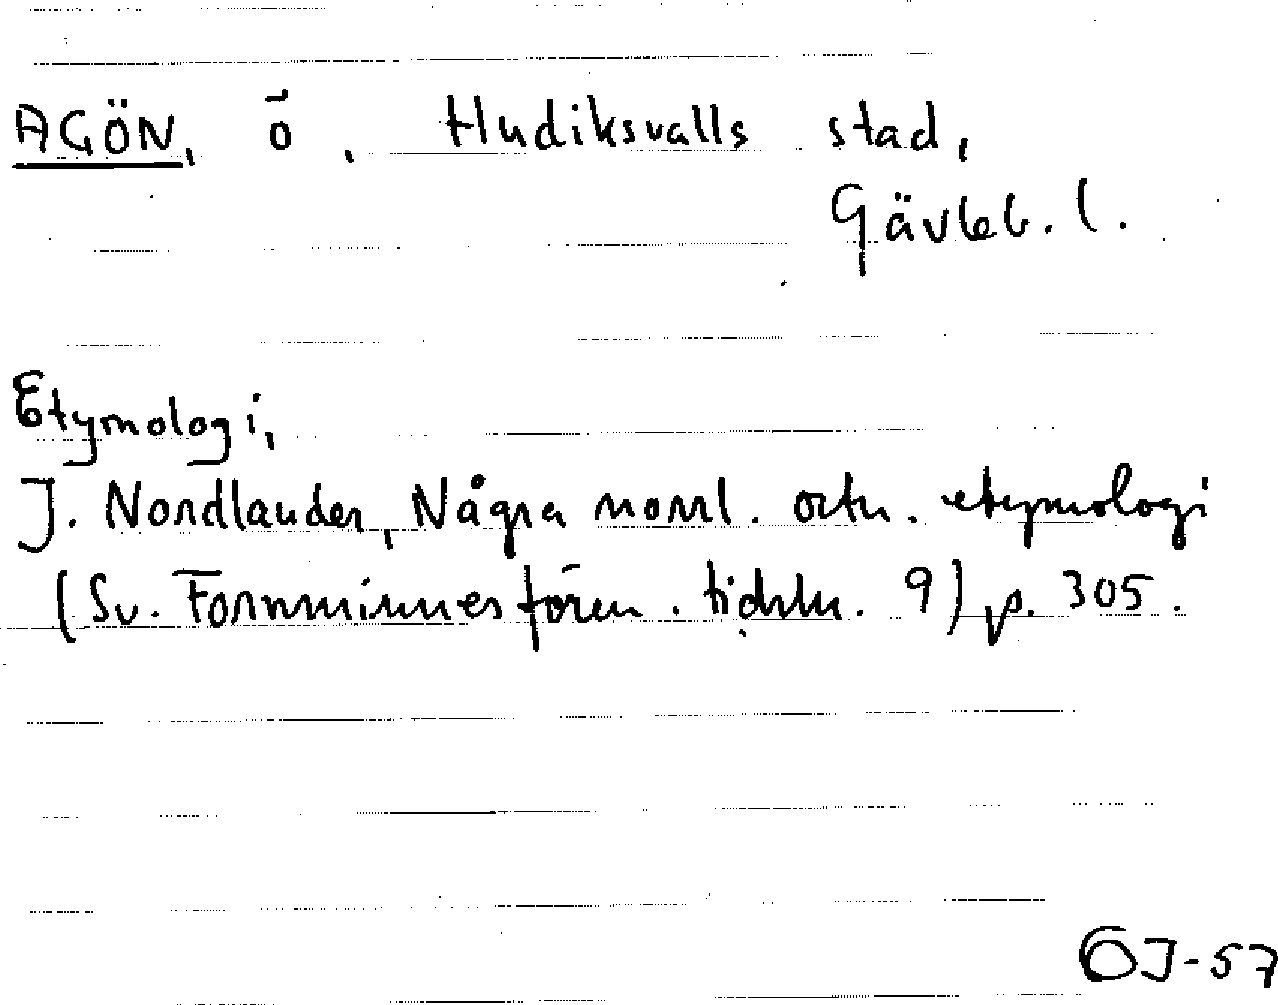 AGÖN, ö, Hudiksvalls stad,
Gävleb. l.
Etymologi,
J. Nordlander, Några norrl. ortn. etymologi
(Sv. Fornminnesfören. tidskr. 9) p. 305.
ÖJ-57